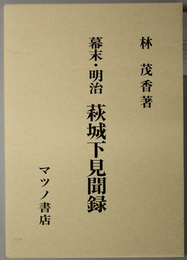 林茂香著
幕末・明治 萩城下見聞録
マツノ書店